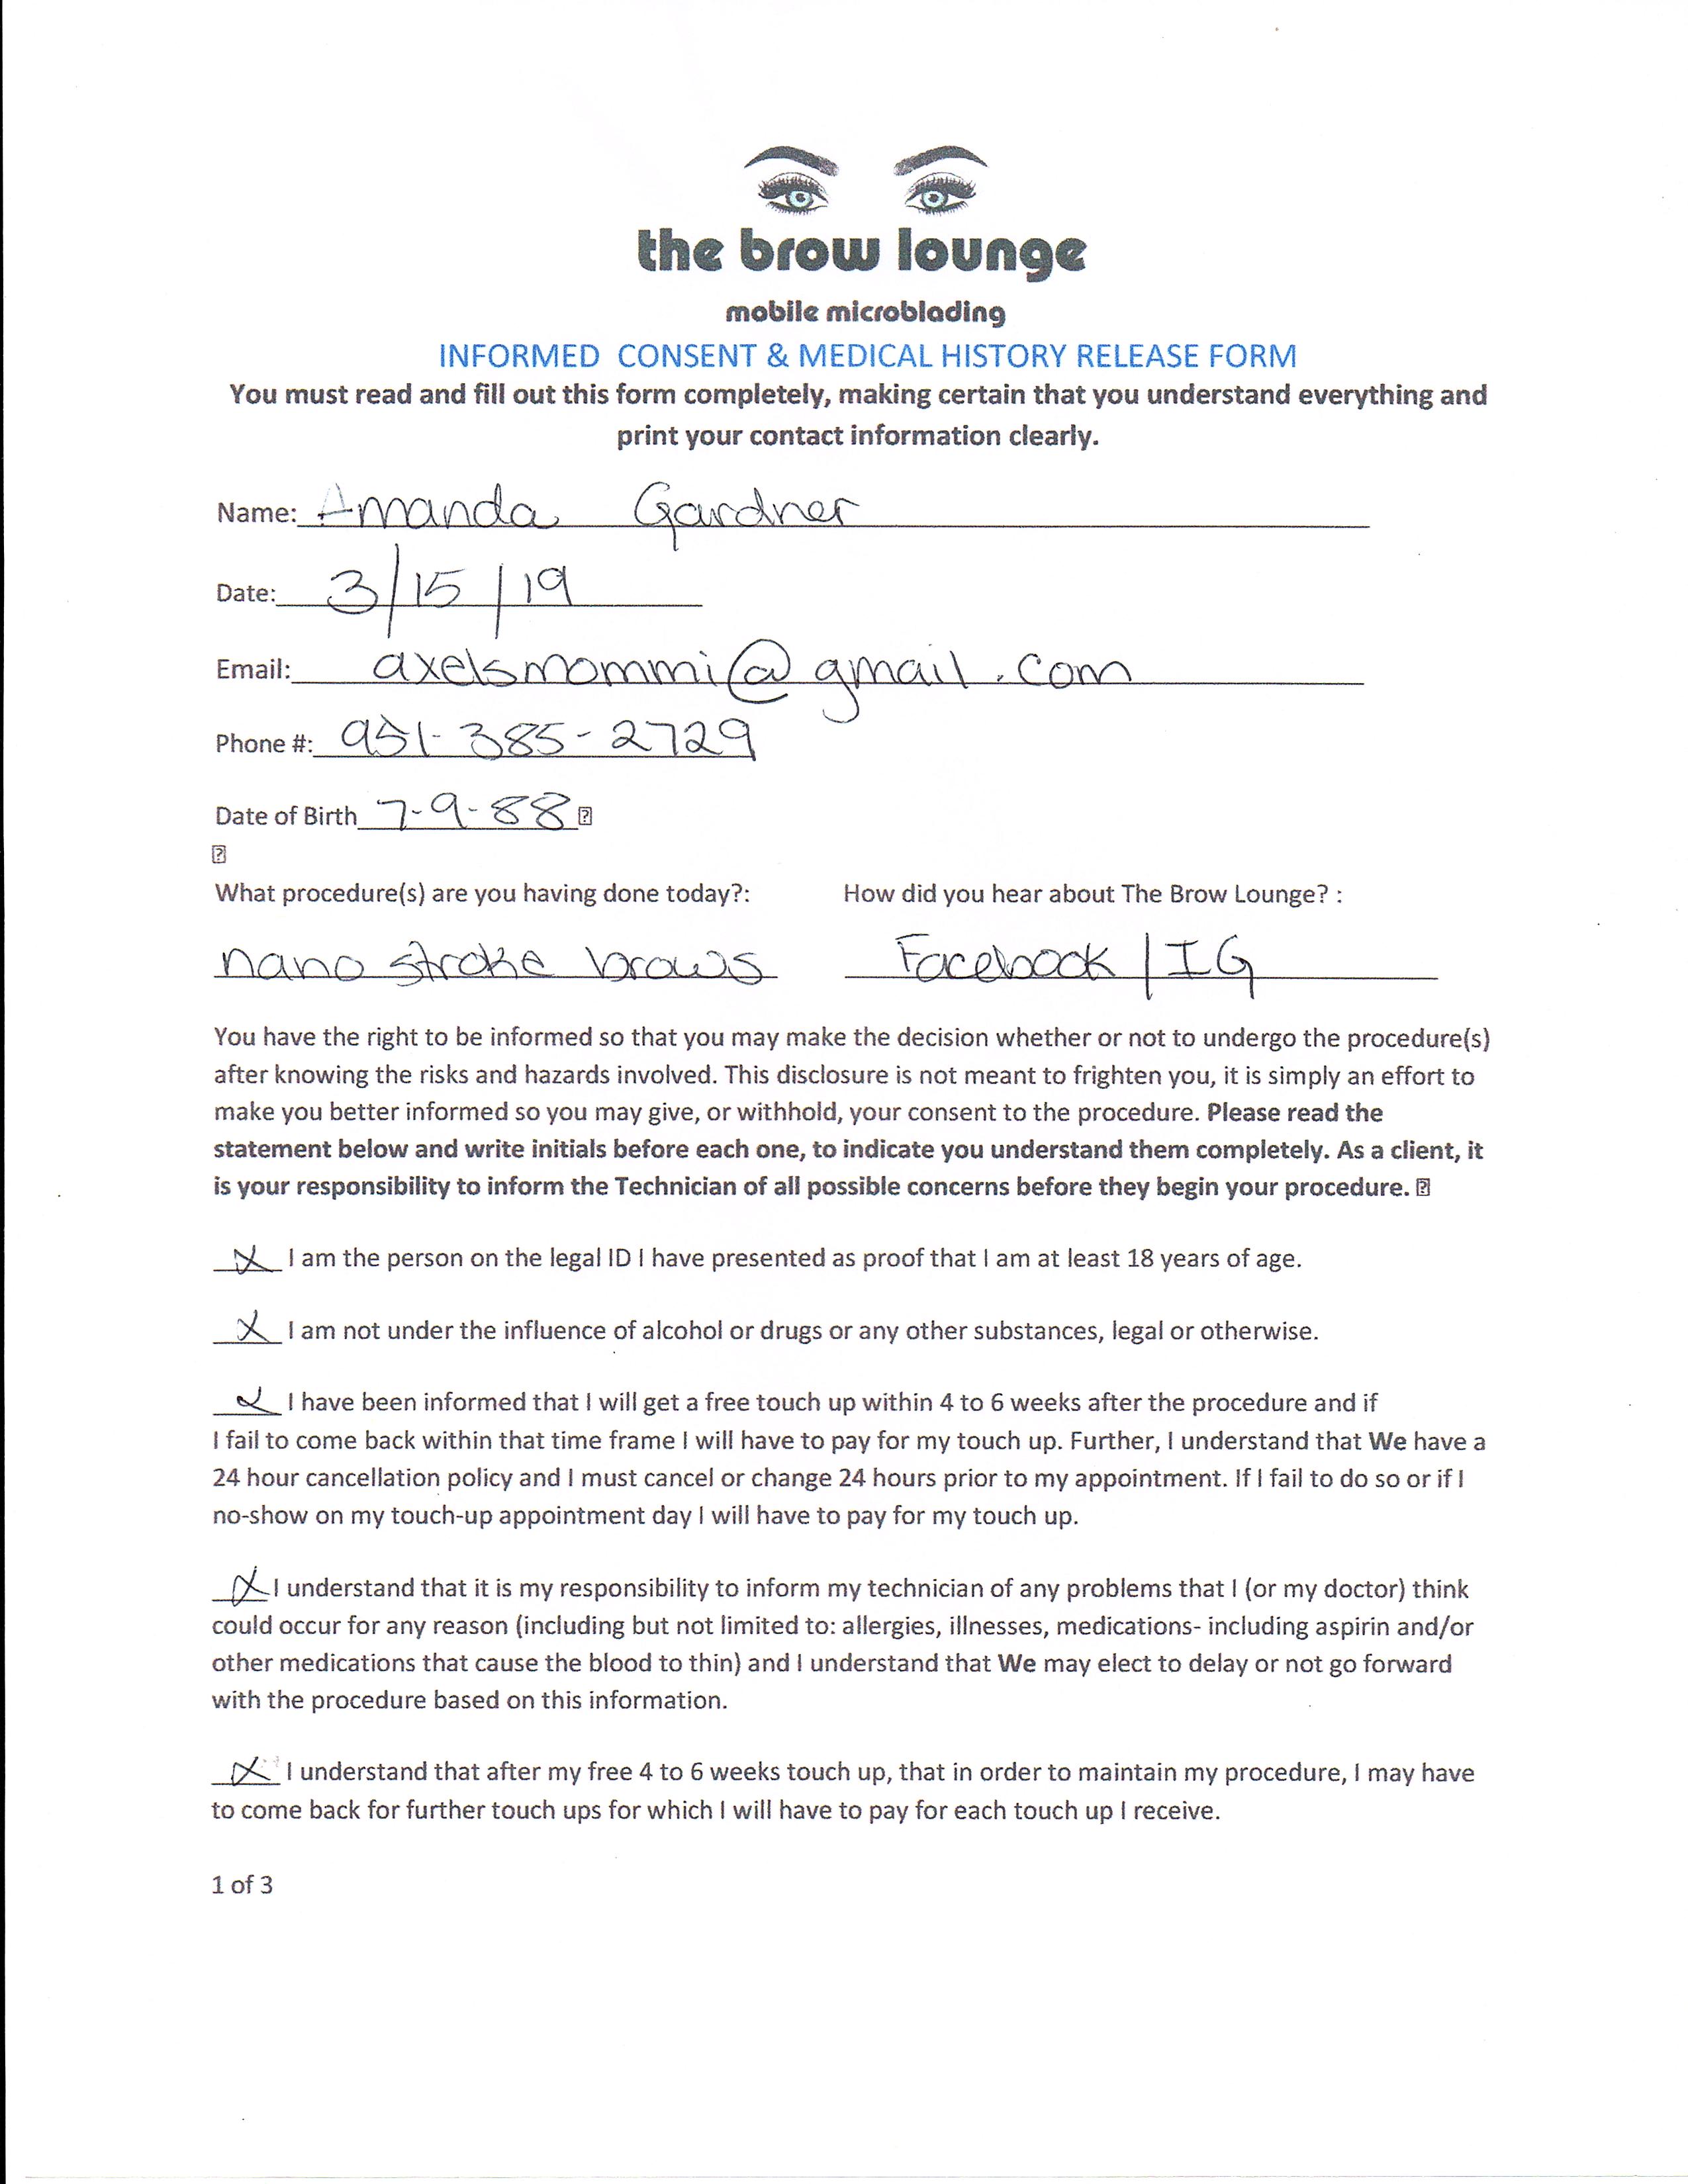 the brow lounge
mobile microblading
INFORMED CONSENT & MEDICAL HISTORY RELEASE FORM
You must read and fill out this form completely, making certain that you understand everything and
print your contact information clearly.
Name: Amanda Gardner
Date: 3/15/19
Email: axelsmommi@gmail.com
Phone #: 951-385-2729
Date of Birth 7-9-88
What procedure(s) are you having done today?: How did you hear about The Brow Lounge? :
nano stroke brows Facebook / IG
You have the right to be informed so that you may make the decision whether or not to undergo the procedure(s)
after knowing the risks and hazards involved. This disclosure is not meant to frighten you, it is simply an effort to
make you better informed so you may give, or withhold, your consent to the procedure. Please read the
statement below and write initials before each one, to indicate you understand them completely. As a client, it
is your responsibility to inform the Technician of all possible concerns before they begin your procedure.
X I am the person on the legal ID I have presented as proof that I am at least 18 years of age.
X I am not under the influence of alcohol or drugs or any other substances, legal or otherwise.
X I have been informed that I will get a free touch up within 4 to 6 weeks after the procedure and if
I fail to come back within that time frame I will have to pay for my touch up. Further, I understand that We have a
24 hour cancellation policy and I must cancel or change 24 hours prior to my appointment. If I fail to do so or if I
no-show on my touch-up appointment day I will have to pay for my touch up.
X I understand that it is my responsibility to inform my technician of any problems that I (or my doctor) think
could occur for any reason (including but not limited to: allergies, illnesses, medications- including aspirin and/or
other medications that cause the blood to thin) and I understand that We may elect to delay or not go forward
with the procedure based on this information.
X I understand that after my free 4 to 6 weeks touch up, that in order to maintain my procedure, I may have
to come back for further touch ups for which I will have to pay for each touch up I receive.
1 of 3